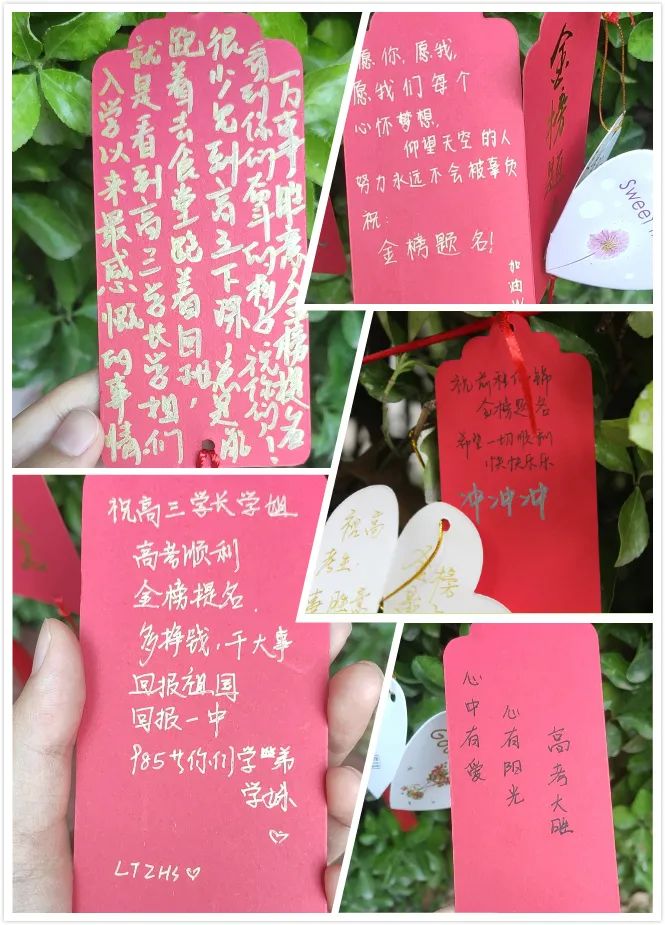 入学以来最感慨的事情
就是看到高三学长学姐们
跑着去食堂跑着回班,
很少见到高三下课,总是能
看到你们奋斗的样子祝你们!
万事胜意金榜提名
愿你,愿我,
愿我们每个
心怀梦想,
仰望天空的人
努力永远不会被辜负
祝:
金榜题名!
加油
金榜题
Sweet
祝前程似锦
金榜题名
希望一切顺利
快快乐乐
冲冲冲
祝高
考生
祝高三学长学姐
高考顺利
金榜提名.
多挣钱,干大事
回报祖国
回报一中
你们学弟
学妹
LTZHS
心中有爱
心有阳光
高考大胜